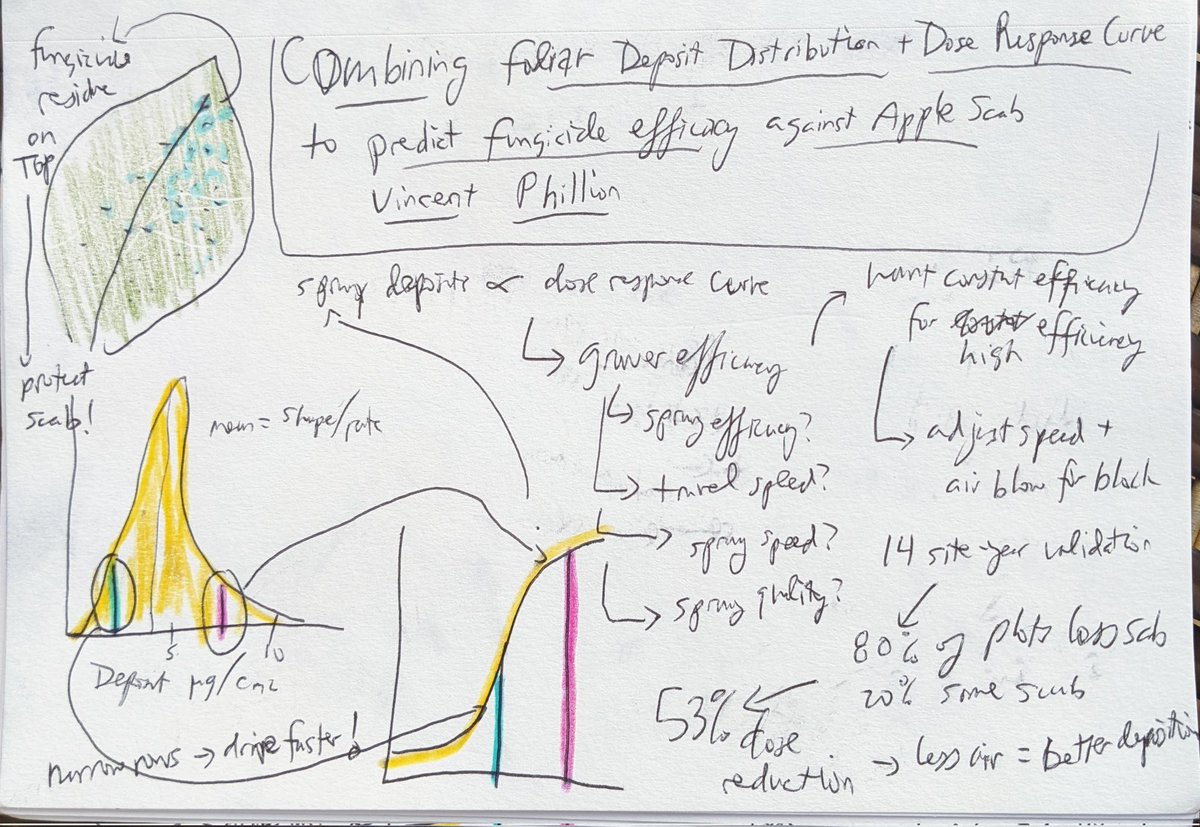 Combining foliar Deposit Distribution + Dose Response Curve
to predict fungicide efficacy against Apple Scab
Vincent Phillion
fungicide
residue
on
TOP
protect
scab!
spray deposits ∝ dose response curve
grower efficacy
spray efficacy?
travel speed?
spray speed?
spray quality?
want constant efficacy
for high efficiency
adjust speed +
air blow for block
mean = shape/rate
5
10
Deposit µg/cm2
narrow rows → drive faster!
14 site-year validation
80% of plots less scab
20% same scab
53% dose
reduction
→ less air = better deposition